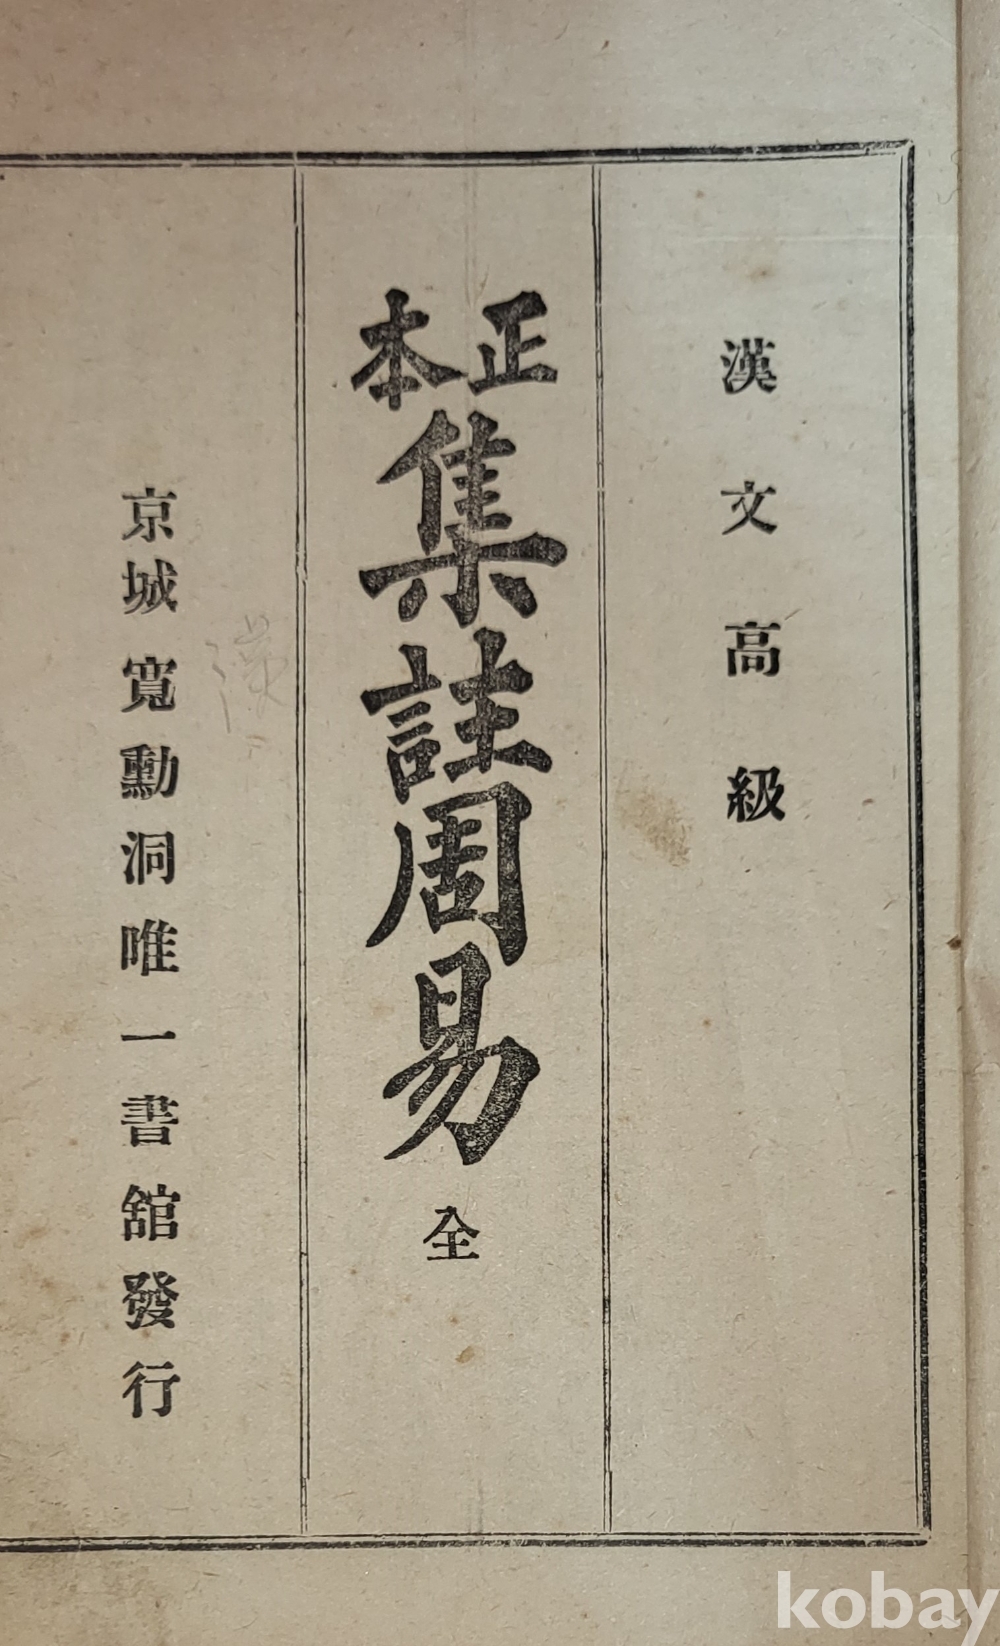 漢文高級
正本
集註周易 全
京城寬勳洞唯一書舘發行
kobay